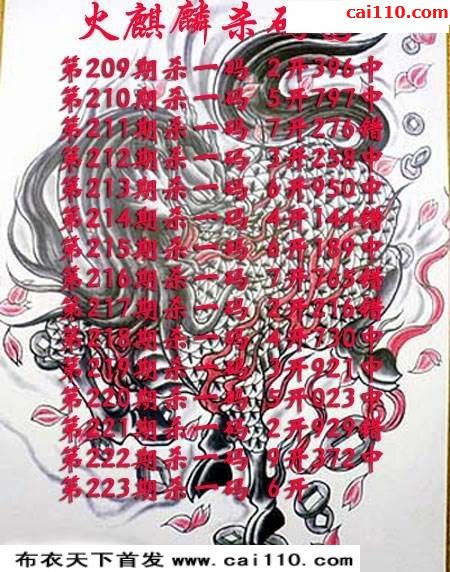 cai110.com
火麒麟杀码
第209期杀一码 2开396中
第210期杀一码 5开797中
第211期杀一码 7开276错
第212期杀一码 3开258中
第213期杀一码 6开950中
第214期杀一码 4开144错
第215期杀一码 6开189中
第216期杀一码 7开765错
第217期杀一码 2开216错
第218期杀一码 4开730中
第219期杀一码 3开921中
第220期杀一码 5开023中
第221期杀一码 2开929错
第222期杀一码 9开372中
第223期杀一码 6开
布衣天下首发 www.cai110.com